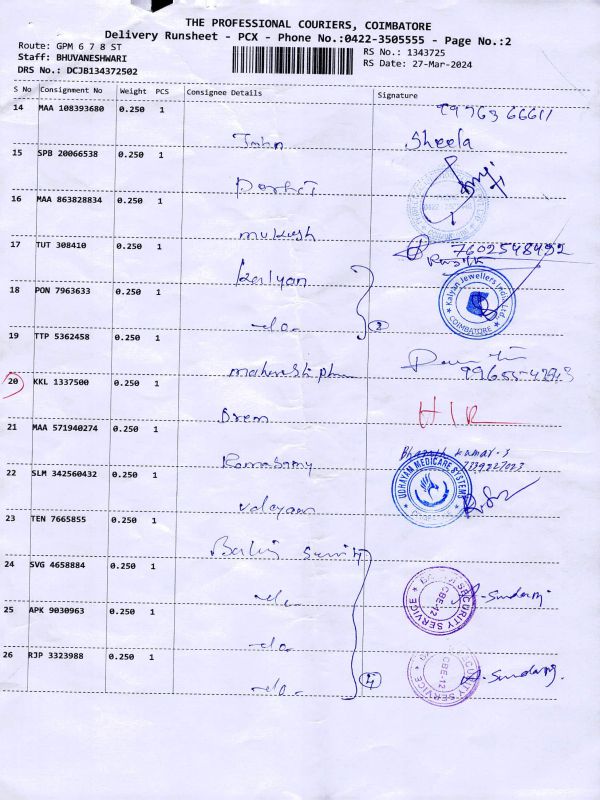 THE PROFESSIONAL COURIERS, COIMBATORE
Delivery Runsheet - PCX - Phone No.:0422-3505555 - Page No.:2
Route: GPM 6 7 8 ST
RS No.: 1343725
Staff: BHUVANESHWARI
RS Date: 27-Mar-2024
DRS No.: DCJB134372502
S No Consignment No Weight PCS Consignee Details Signature
14 MAA 108393680 0.250 1 99763 66611
John Sheela
15 SPB 20066538 0.250 1
16 MAA 863828834 0.250 1
mukesh
17 TUT 308410 0.250 1 7602548492
Kalyan
Kalyan Jewellers
COIMBATORE
18 PON 7963633 0.250 1
-do- 2
19 TTP 5362458 0.250 1
20 KKL 1337500 0.250 1
21 MAA 571940274 0.250 1
Ramasamy
UDHAYAM MEDICARE SYSTEMS
22 SLM 342560432 0.250 1
23 TEN 7665855 0.250 1
24 SVG 4658884 0.250 1
-do- SECURITY SERVICE CBE-12
25 APK 9030963 0.250 1
-do-
26 RJP 3323988 0.250 1
-do- 4 SECURITY SERVICE CBE-12